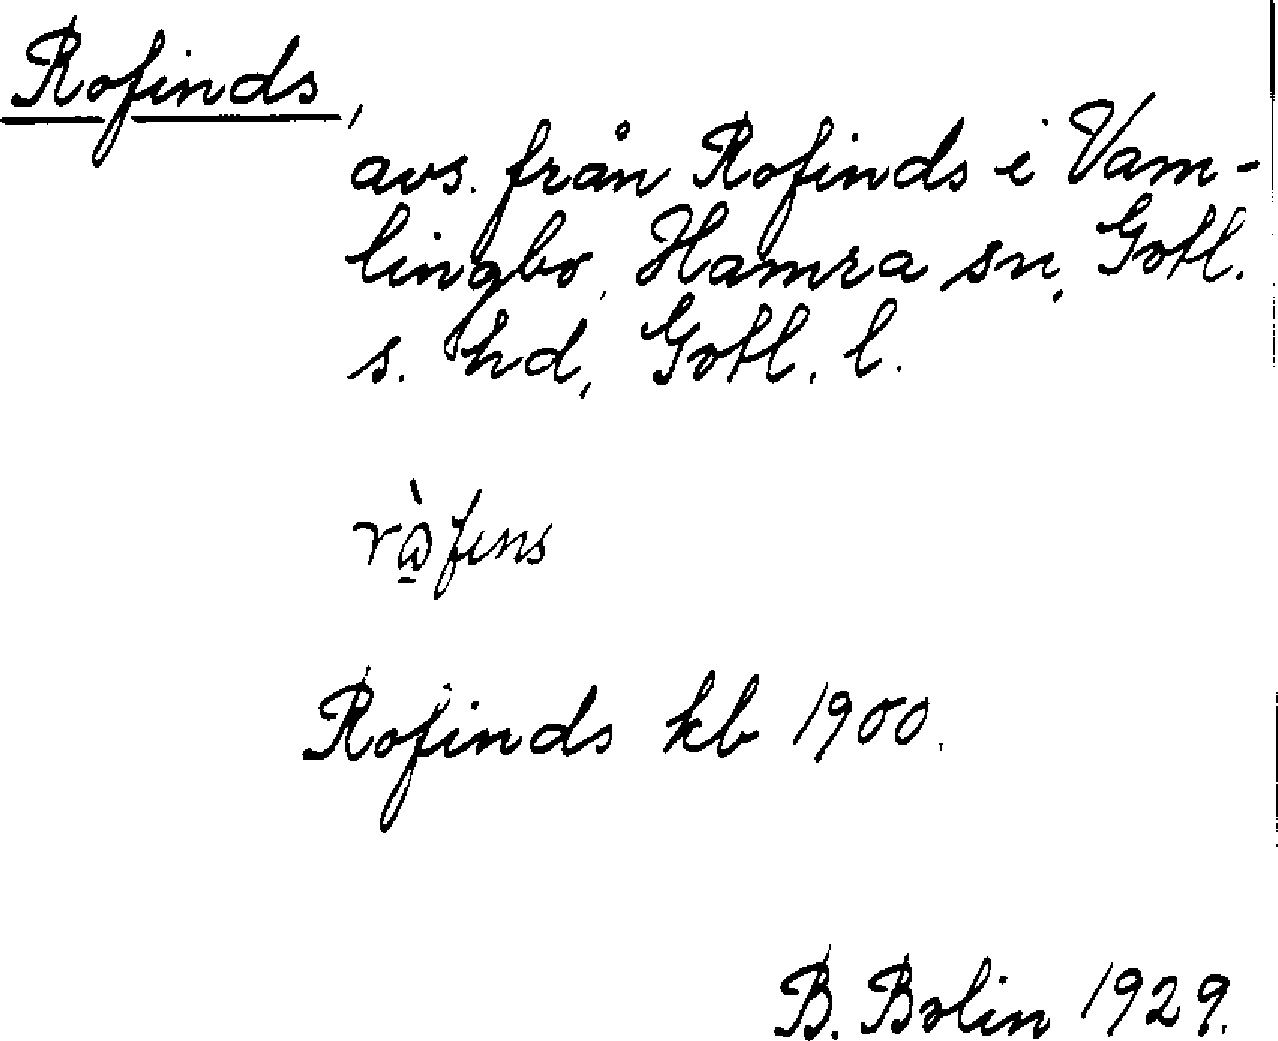 Rofinds,
avs. från Rofinds i Vam-
lingbo, Hamra sn, Gotl.
s. hd, Gotl. l.
Rofinds kb 1900.
B. Bolin 1929.